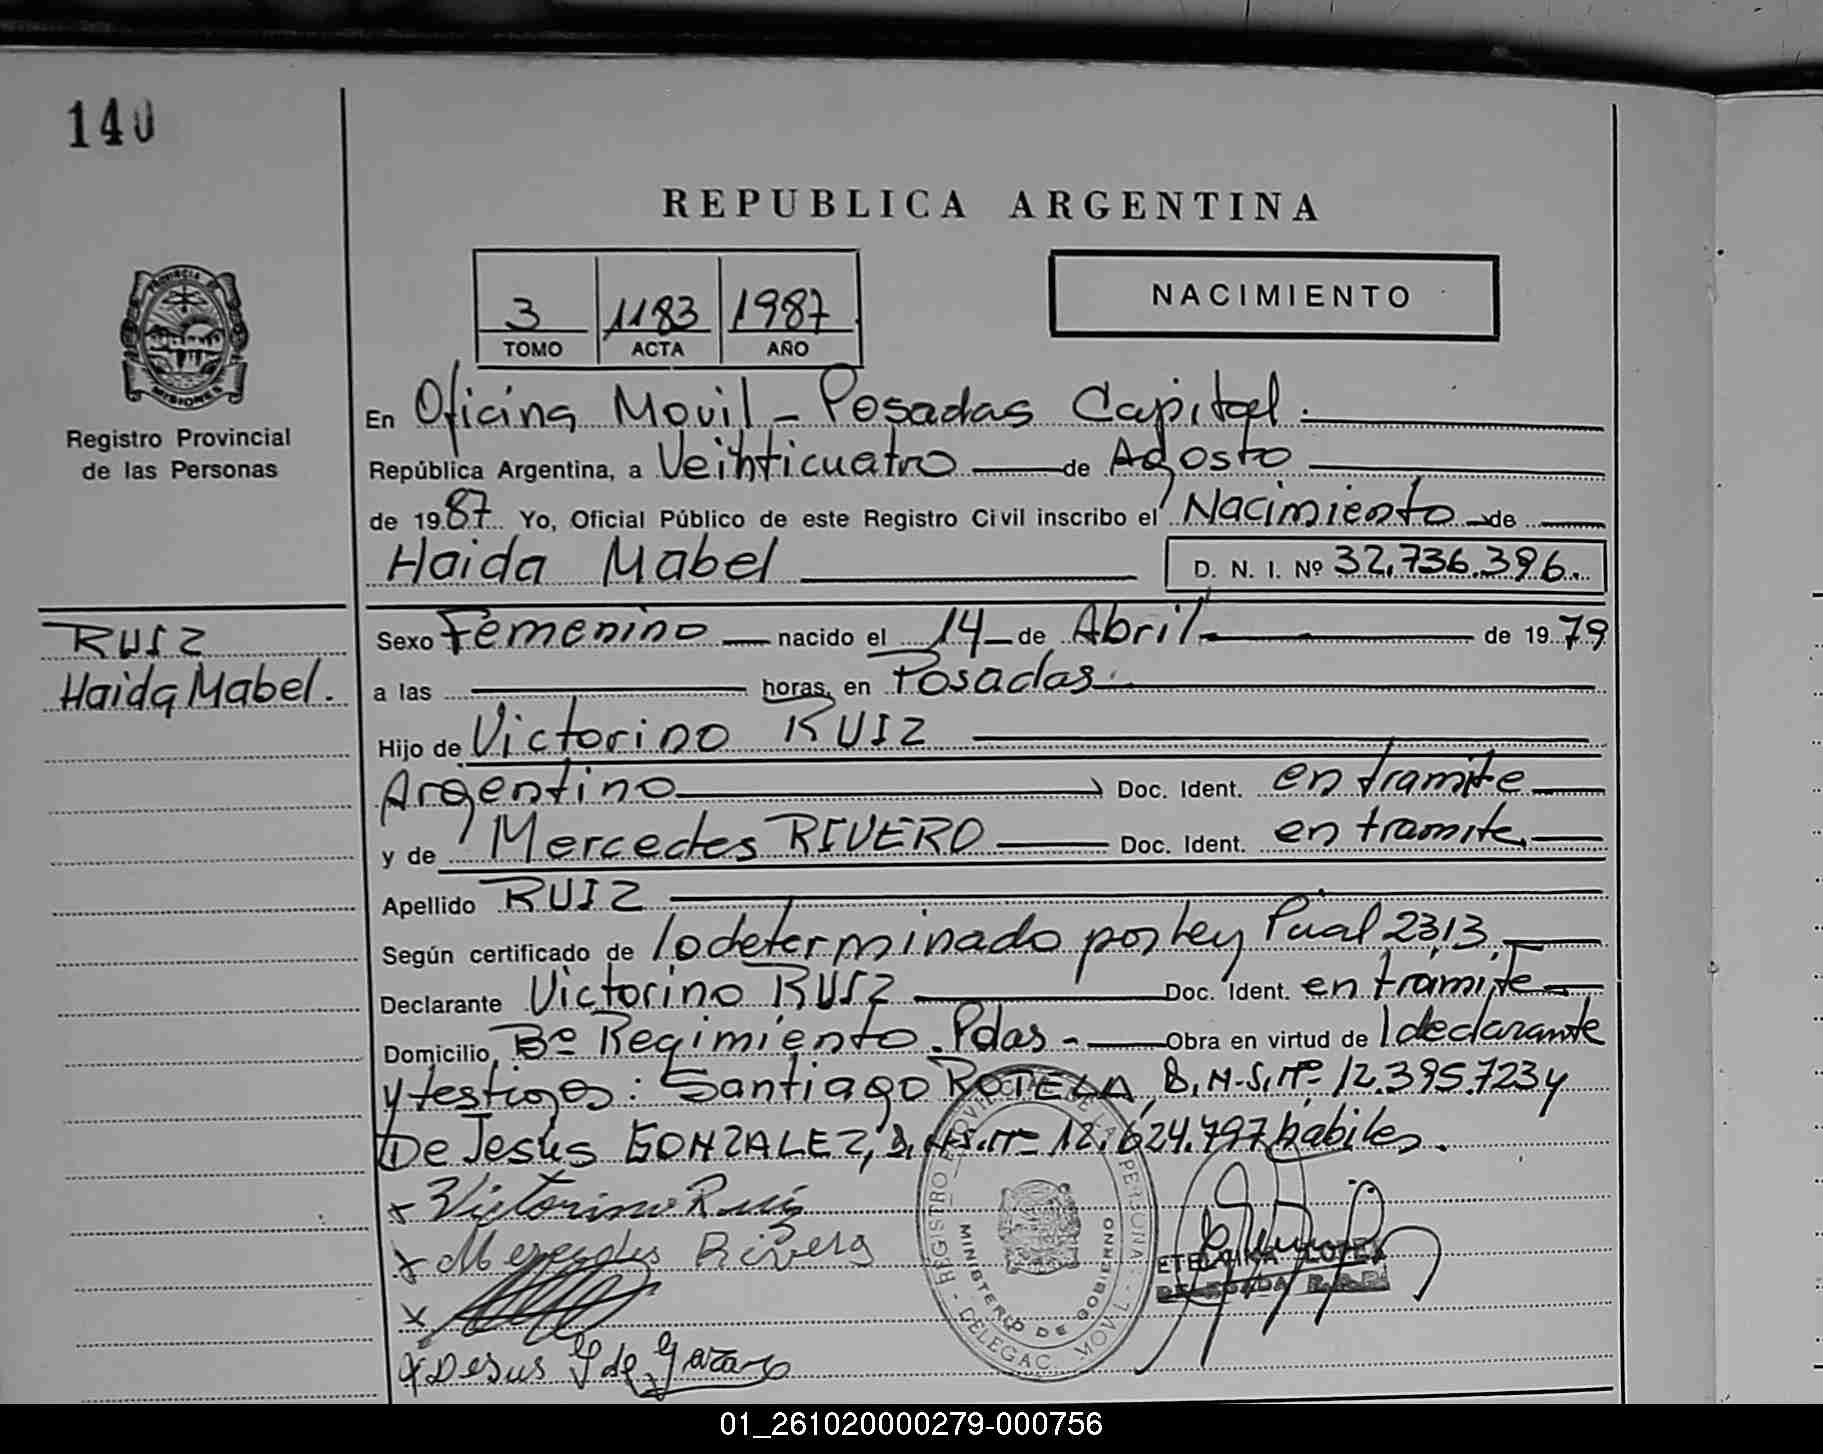 140
REPUBLICA ARGENTINA
PROVINCIA DE
MISIONES
Registro Provincial
de las Personas
3 1183 1987
TOMO ACTA AÑO
NACIMIENTO
En Oficina Movil - Posadas Capital.
República Argentina, a Veinticuatro de Agosto
de 1987 Yo, Oficial Público de este Registro Civil inscribo el Nacimiento de
Haida Mabel
D. N. I. Nº 32.736.396.
RUIZ
Haida Mabel.
Sexo Femenino nacido el 14 de Abril de 1979
a las horas, en Posadas.
Hijo de Victorino RUIZ
Argentino Doc. Ident. en tramite
y de Mercedes RIVERO Doc. Ident. en tramite
Apellido RUIZ
Según certificado de lo determinado por Ley Pcial 2313.
Declarante Victorino RUIZ Doc. Ident. en tramite
Domicilio Bº Regimiento. Pdas - Obra en virtud de l declarante
y testigos: Santiago ROTELA, D.N.I. Nº 12.395.723 y
De Jesús GONZALEZ, D.N.I. Nº 12.624.797 hábiles.
x Victorino Ruis
x Mercedes Rivero
x
x Desus G de
REGISTRO PROVINCIAL DE LAS PERSONAS
MINISTERIO DE GOBIERNO
DELEGAC. MOVIL
DELEGADA R.P.P.
01_261020000279-000756